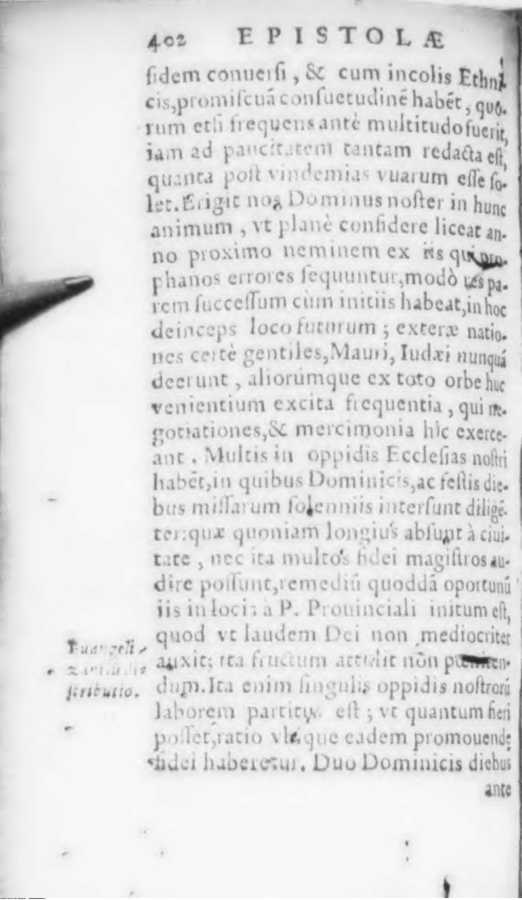 402 EPISTOLÆ
fidem conuersi, & cum incolis Ethni-
cis, promiscuâ consuetudinē habēt, quo-
rum etsi frequens antè multitudo fuerit,
iam ad paucitatem tantam redacta est,
quanta post vindemias vuarum esse so-
let. Erigit nos Dominus noster in hunc
animum, vt planè confidere liceat an-
no proximo neminem ex iis qui pro-
phanos errores sequuntur, modò res pa-
rem successum cum initiis habeat, in hoc
deinceps loco futurum; exteræ natio-
nes certè gentiles, Mauri, Iudæi nunquā
deerunt, aliorúmque ex toto orbe huc
venientium excita frequentia, qui ne-
gotiationes, & mercimonia hîc exerce-
ant. Multis in oppidis Ecclesias nostri
habēt, in quibus Dominicis, ac festis die-
bus missarum solenniis intersunt diligē-
ter: quæ quoniam longius absunt à ciui-
tate, nec ita multos fidei magistros au-
dire possunt, remediū quoddā oportunū
iis in locis à P. Prouinciali initum est,
quod vt laudem Dei non mediocriter
auxit; ita fructum attulit nōn pœniten-
dum. Ita enim singulis oppidis nostrorū
laborem partitus est; vt quantum fieri
posset, ratio vbique eadem promouendę
fidei haberetur. Duo Dominicis diebus
ante
Euangeli-
stributio.